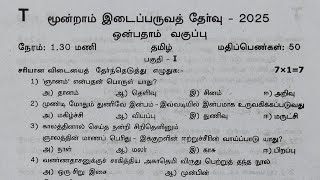 T மூன்றாம் இடைப்பருவத் தேர்வு - 2025
ஒன்பதாம் வகுப்பு
நேரம்: 1.30 மணி தமிழ் மதிப்பெண்கள்: 50
பகுதி - I
சரியான விடையைத் தேர்ந்தெடுத்து எழுதுக:- 7×1=7
1) 'ஞானம்' என்பதன் பொருள் யாது?
அ) தானம் ஆ) தெளிவு இ) சினம் ஈ) அறிவு
2) முண்டி மோதும் துணிவே இன்பம் - இவ்வடியில் இன்பமாக உருவகிக்கப்படுவது
அ) மகிழ்ச்சி ஆ) வியப்பு இ) துணிவு ஈ) மருட்சி
3) காலத்தினால் செய்த நன்றி சிறிதெனினும்
ஞாலத்தின் மாணப் பெரிது - இக்குறளின் ஈற்றுச்சீரின் வாய்ப்பாடு யாது?
அ) நாள் ஆ) மலர் இ) காசு ஈ) பிறப்பு
4) வண்ணதாசனுக்குச் சாகித்திய அகாதெமி விருது பெற்றுத் தந்த நூல்
அ) ஒரு சிறு இசை ஆ) முன்பின்